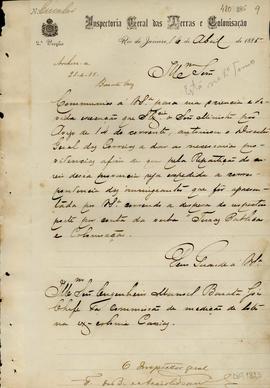 N. Circular
480 885 9
Inspectoria Geral das Terras e Colonisação
2ª Secção
Rio de Janeiro, de Abril de 1885
Archive-se
Illm. Snr.
Communico a V.Sa. para sua sciencia e de-
vida execução que S. Exa. o Snr. Ministro por
Aviso de 1º do corrente, autorisou o Director
Geral dos Correios a dar as necessarias pro-
videncias afim de que pela Repartição do cor-
reio dessa provincia seja expedida a corres-
pondencia dos immigrantes que for apresen-
tada por V.Sa. correndo a despeza do respectivo
porte por conta da verba Terras Publicas
e Colonisação.
Deus Guarde a V.Sa.
Illm. Snr. Engenheiro Manoel
Chefe da Commissão de medição de lotes
na ex-colonia Caxias
O Inspector geral